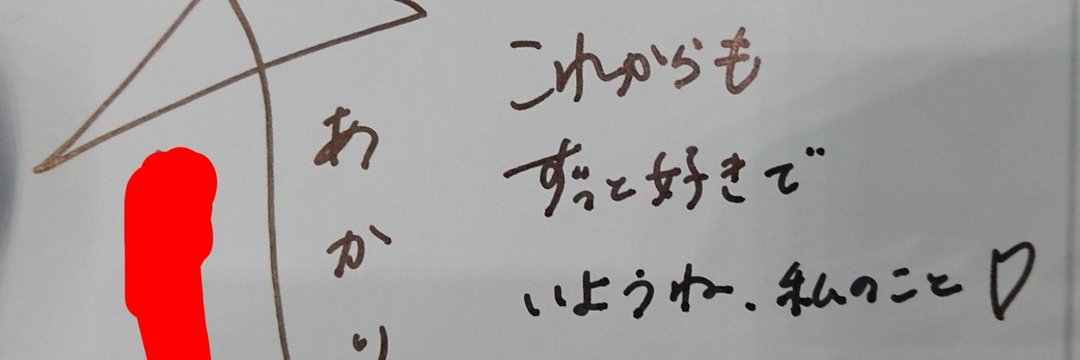 これからも
ずっと好きで
いようね、私のこと♡
あかり